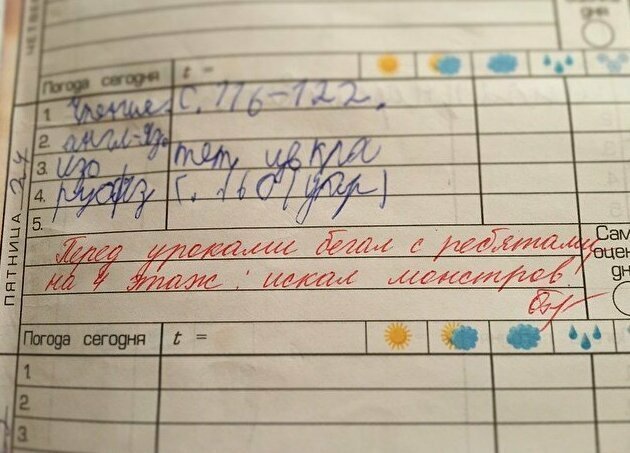 ЧЕТВЕ
дня
Погода сегодня t =
1. Чтение с. 116-122.
2. англ-яз.
3. изо тет цв кра
4. русяз с. 160 (упр)
5.
ПЯТНИЦА 24
Перед уроками бегал с ребятами
на 4 этаж: искал монстров.
Сам
оцен
дн
Погода сегодня t =
1
2
3.